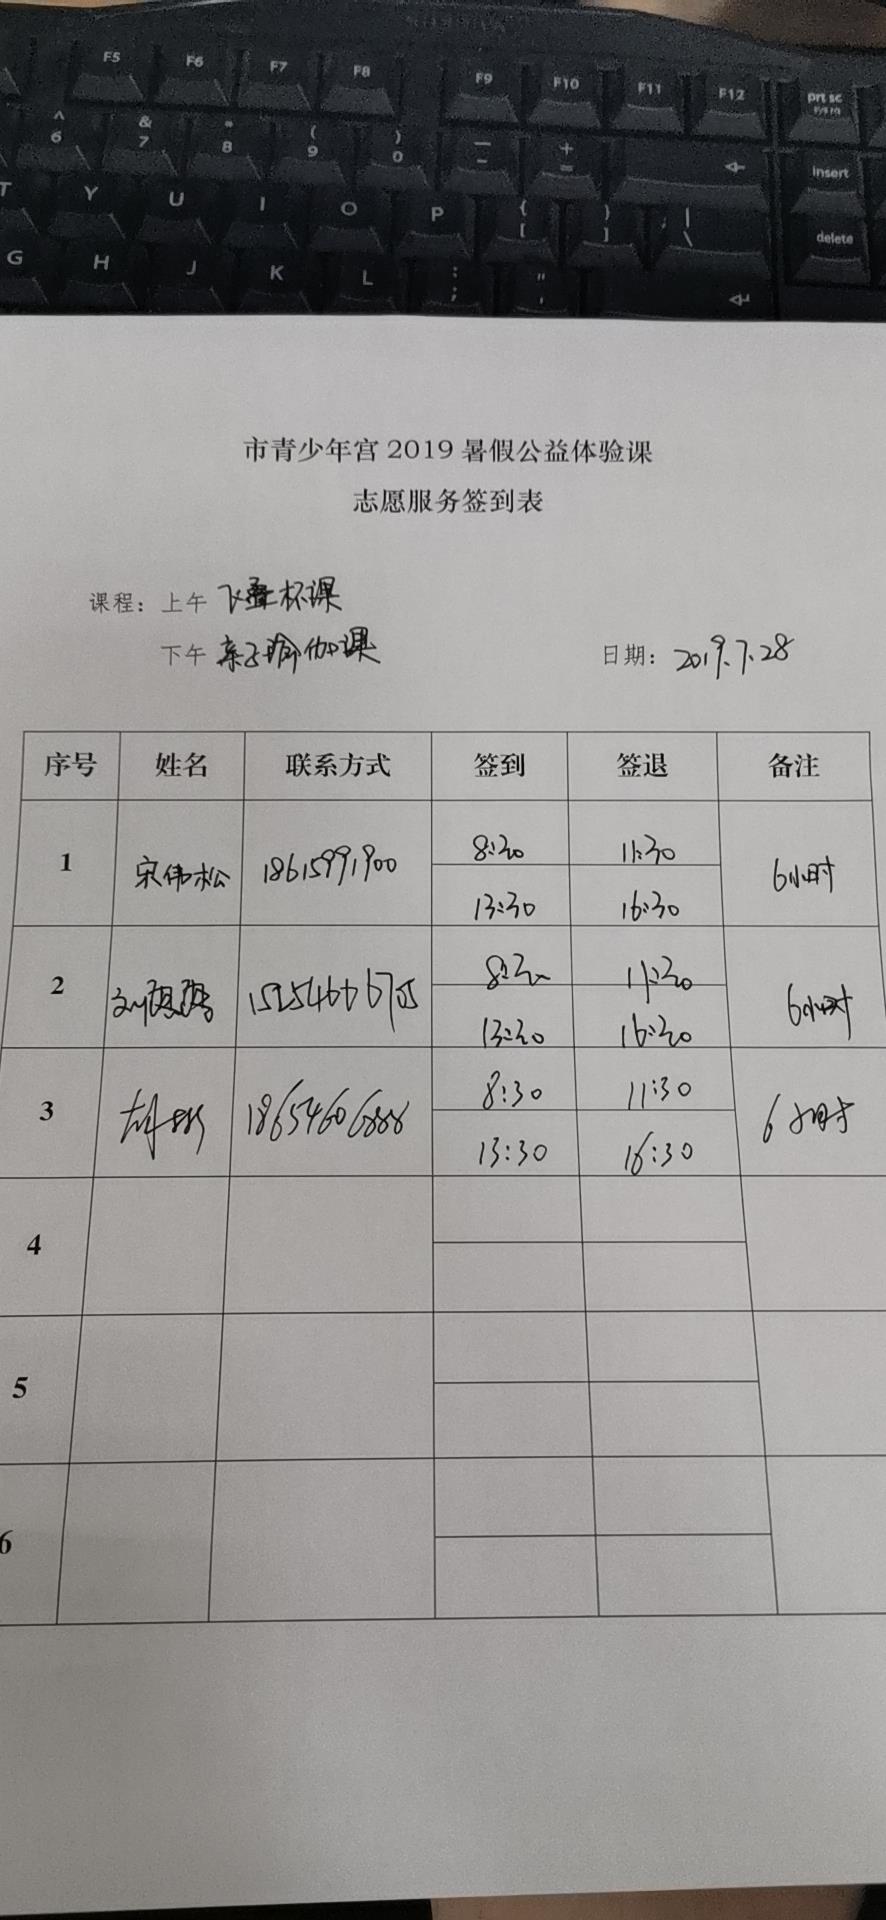 F5 F6 F7 F8 F9 F10 F11 F12 prt sc
^ & * ( ) — +
6 7 8 9 0 - = insert
T Y U I O P { [ } ] | \ delete
G H J K L : ; " '
市青少年宫 2019 暑假公益体验课
志愿服务签到表
课程：上午 飞叠杯课
下午 亲子瑜伽课 日期：2019.7.28
序号 姓名 联系方式 签到 签退 备注
1 宋伟松 18615991900 8:30 11:30 6小时
13:30 16:30
2 8:30 11:30 6小时
13:30 16:30
3 18654606888 8:30 11:30 6小时
13:30 16:30
4
5
6